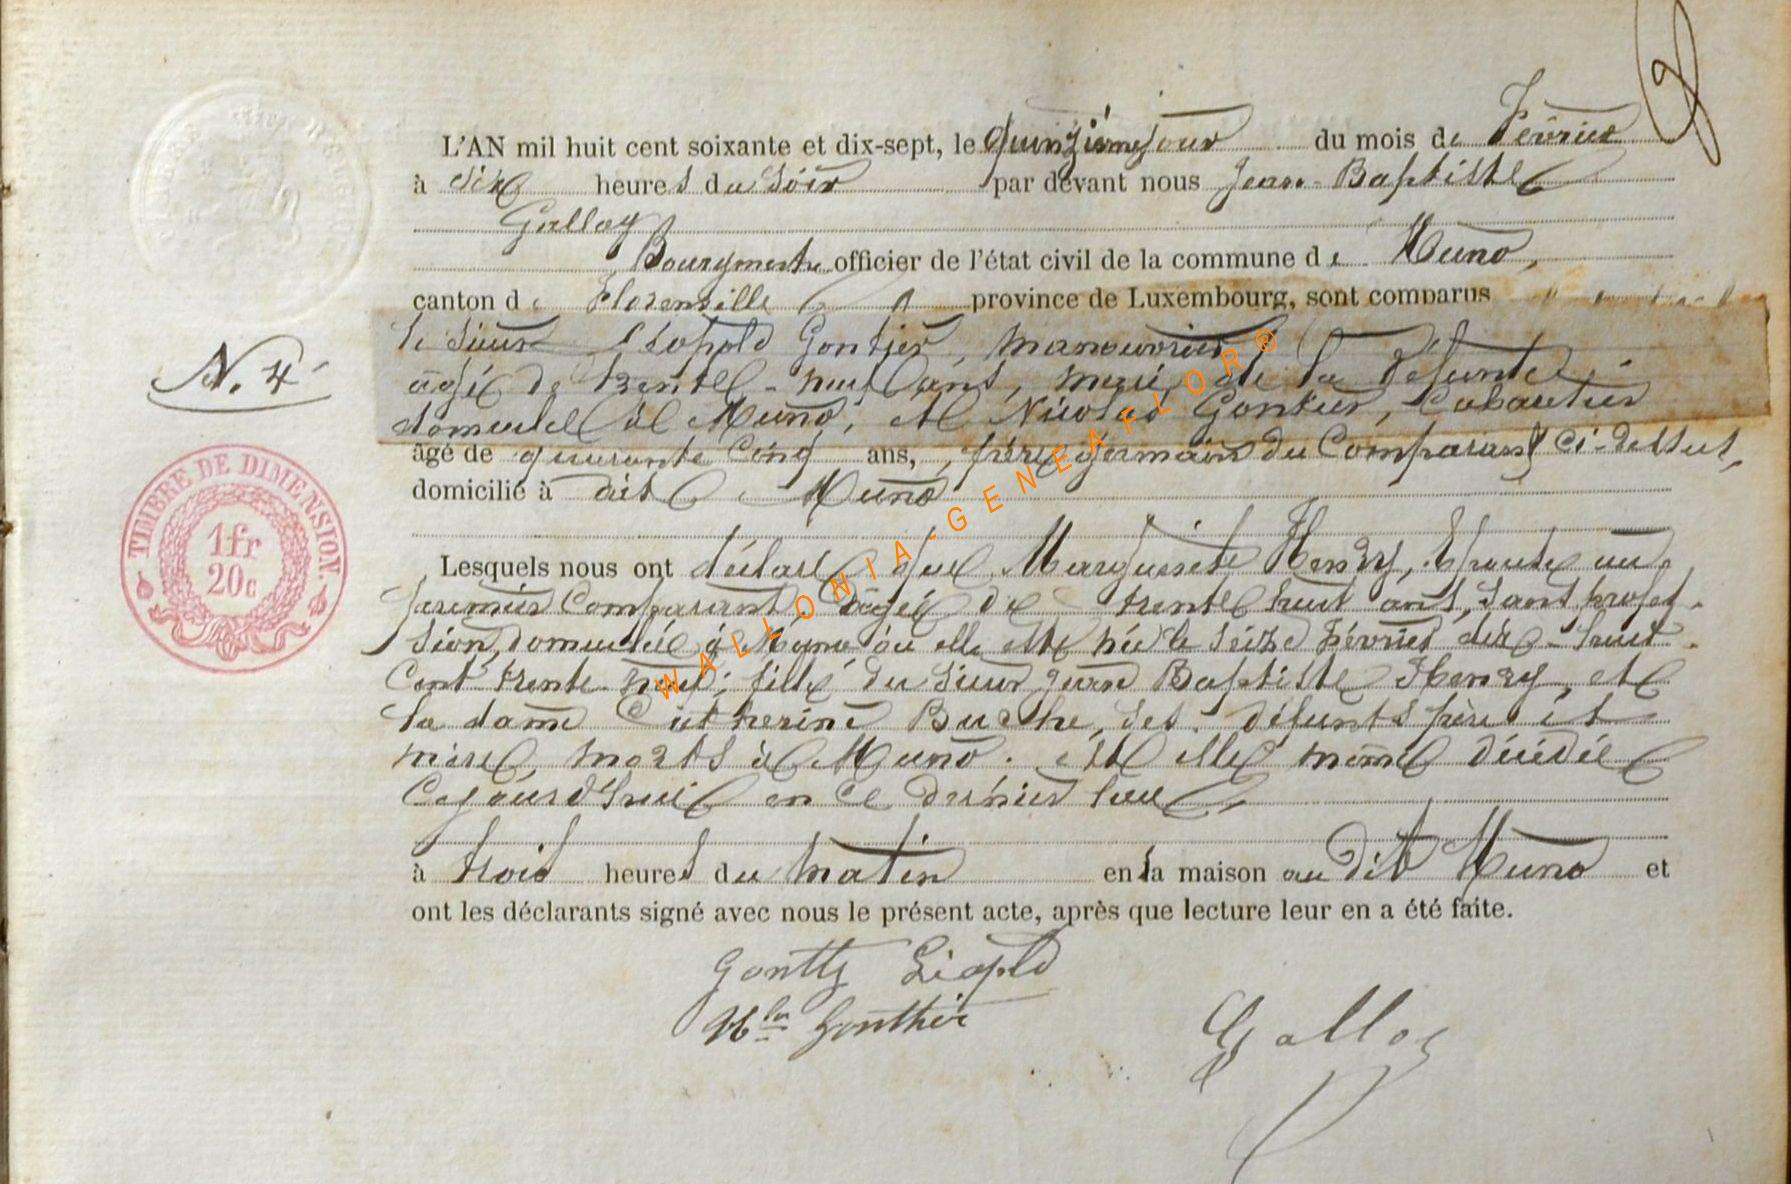 L'AN mil huit cent soixante et dix-sept, le quinzième jour du mois de Février
à six heures du soir par devant nous Jean-Baptiste
Galloy
Bourgmestre officier de l'état civil de la commune de Muno,
canton de Florenville province de Luxembourg, sont comparus
le sieur Léopold Gontier, manouvrier
âgé de trente-huit ans, mari de la défunte
domicilié à Muno, et Nicolas Gontier, Cabaretier
âgé de quarante cinq ans, frère germain du Comparant ci-dessus,
domicilié à dit Muno
N. 4
TIMBRE DE DIMENSION.
1fr
20c
Lesquels nous ont déclaré que Marguerite Henry, Epouse au
premier Comparant, âgée de trente huit ans, sans profes-
sion, domiciliée à Muno où elle est née le seize Février dix-huit
Cent trente-neuf; fille du sieur Jean Baptiste Henry, et
la dame Catherine Buche, ses défunts père et
mère, morts à Muno. est elle même décédée
Cejourd'hui en ce dernier lieu,
à trois heures du matin en la maison au dit Muno et
ont les déclarants signé avec nous le présent acte, après que lecture leur en a été faite.
Léopold
Nlas Gonthier
Galloy
WALLONIA-GENEAFLOR®